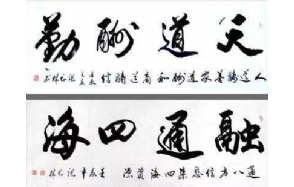 天道酬勤
人道酬善家道酬和商道酬信
融通四海
通八方信息集四海資源